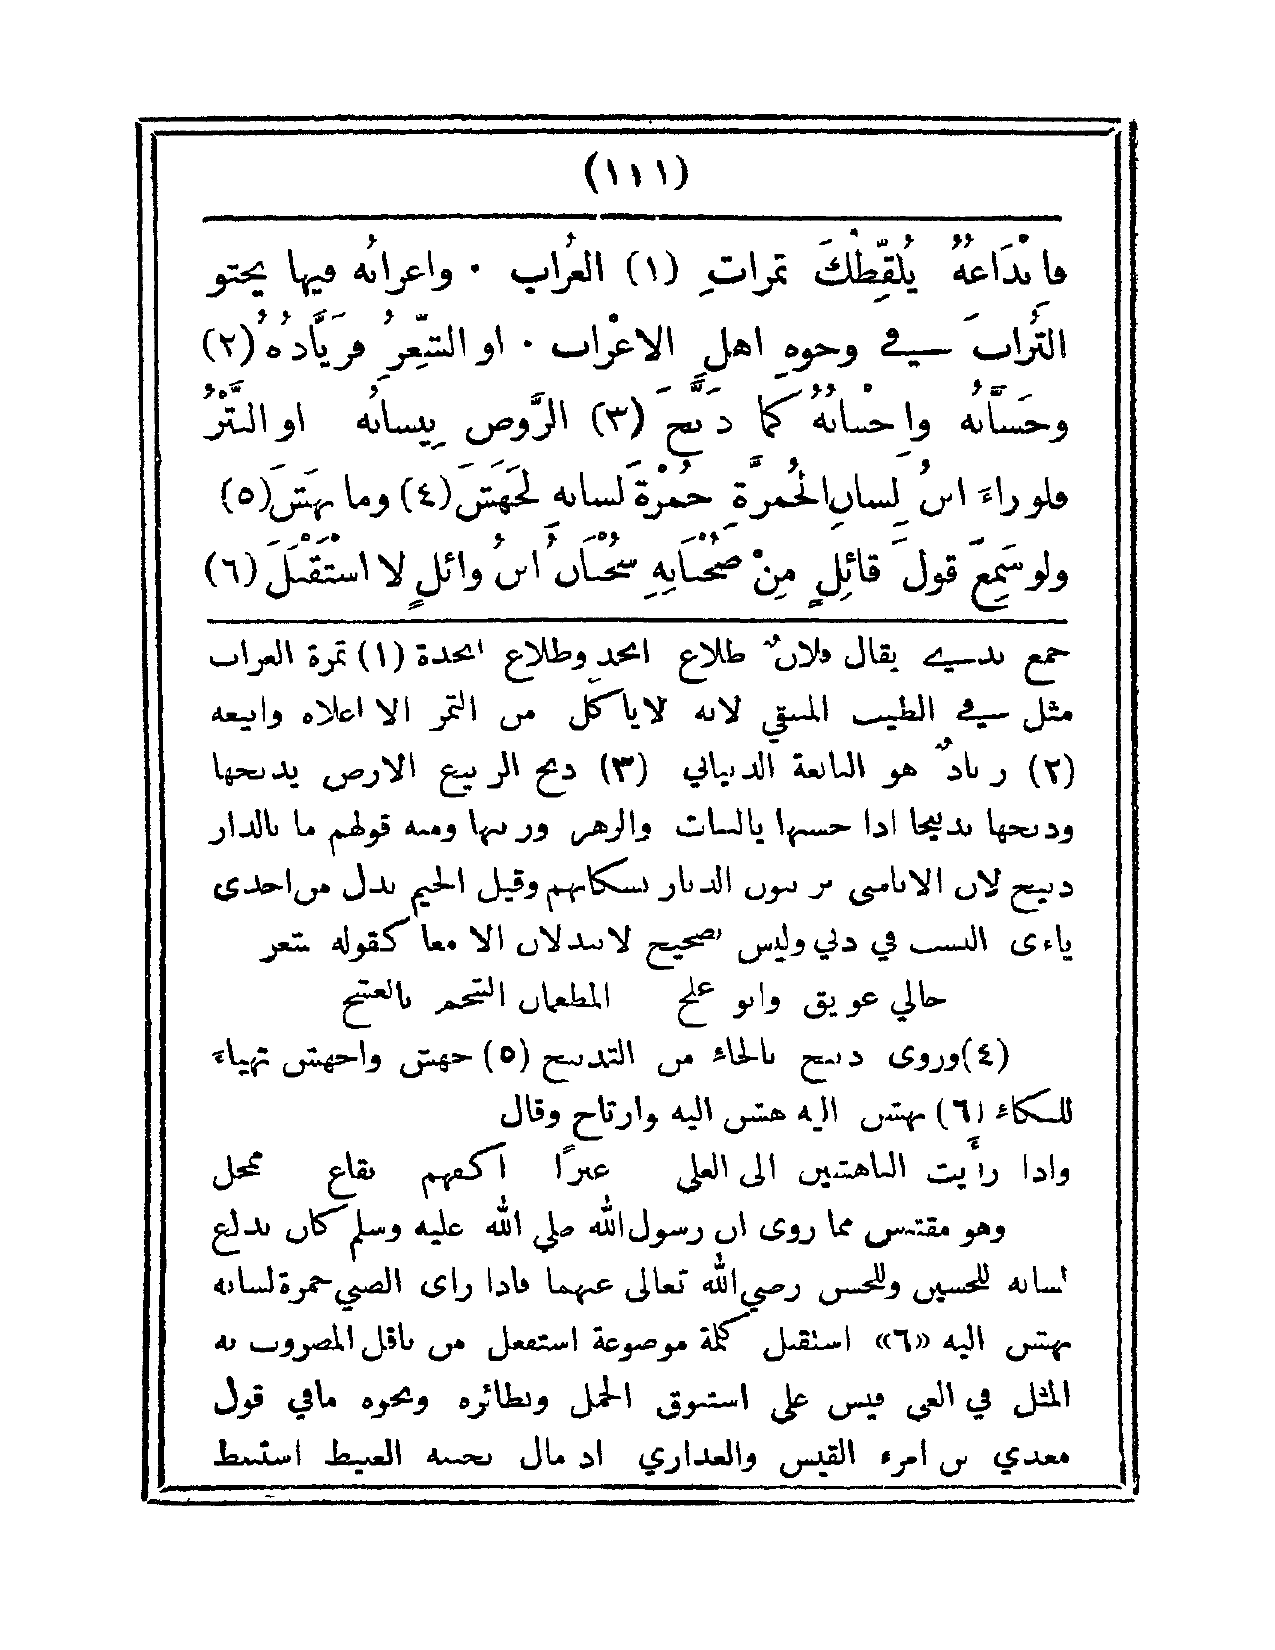 (١١١)
فابْداعُهُ يُلَقِّطُكَ تمراتِ (١) الغُراب ٠ واغرابُه فيها يحثو
التُرابَ في وجوهِ اهلِ الاغْراب ٠ او الشِّعرُ فزيَّادُهُ (٢)
وحَسَّانُه واِحْسانُهُ كما دَبَّجَ (٣) الرَّوض نِيسانُه او النَّثْرُ
فلو راءَ ابنُ لِسانِ الحُمرَّةِ حُمْرَةَ لسانه لَجَهَشَ (٤) وما بهَشَ (٥)
ولو سَمِعَ قولَ قائِلٍ مِنْ صَحْبَانِهِ سَحْبَانُ ابنُ وائلٍ لا اسْتَقْبَلَ (٦)
جمع نديّ يقال فلانٌ طلاع انجدٍ وطلاع انجدة (١) تمرة الغراب
مثل في الطيب المنتقي لانه لا ياكل من التمر الا اعلاه واينعه
(٢) زيادٌ هو النابغة الذبياني (٣) دبج الربيع الارض يدبجها
ودبجها تدبيجا اذا حسنها بالنبات والزهر وزينها ومنه قولهم ما بالدار
دبيج لان الاناسي يزينون الديار بسكناهم وقيل الجيم بدل من احدى
ياءى النسب في دبي وليس بصحيح لانه لا تبدلان الا معا كقوله شعر
خالي عويق وابو علج المطعمان الشحم بالعشج
(٤) وروى دبج بالحاء من التدبيح (٥) جهش واجهش تهياء
للبكاء (٦) بهش اليه هش اليه وارتاح وقال
واذا رأيت الباهشين الى العلي غبرًا اكفهم بقاع ممحل
وهو مقتبس مما روى ان رسول الله صلي الله عليه وسلم كان يدلع
لسانه للحسين وللحسن رضي الله تعالى عنهما فاذا راى الصبي حمرة لسانه
بهش اليه «٦» استقبل كلمة موضوعة استفعل من باقل المضروب به
المثل في العي قيس علي استنوق الجمل ونظائره ونحوه مافي قول
معدي بن امرء القيس والعذاري اذ مال بجنبه الغبيط استنبط